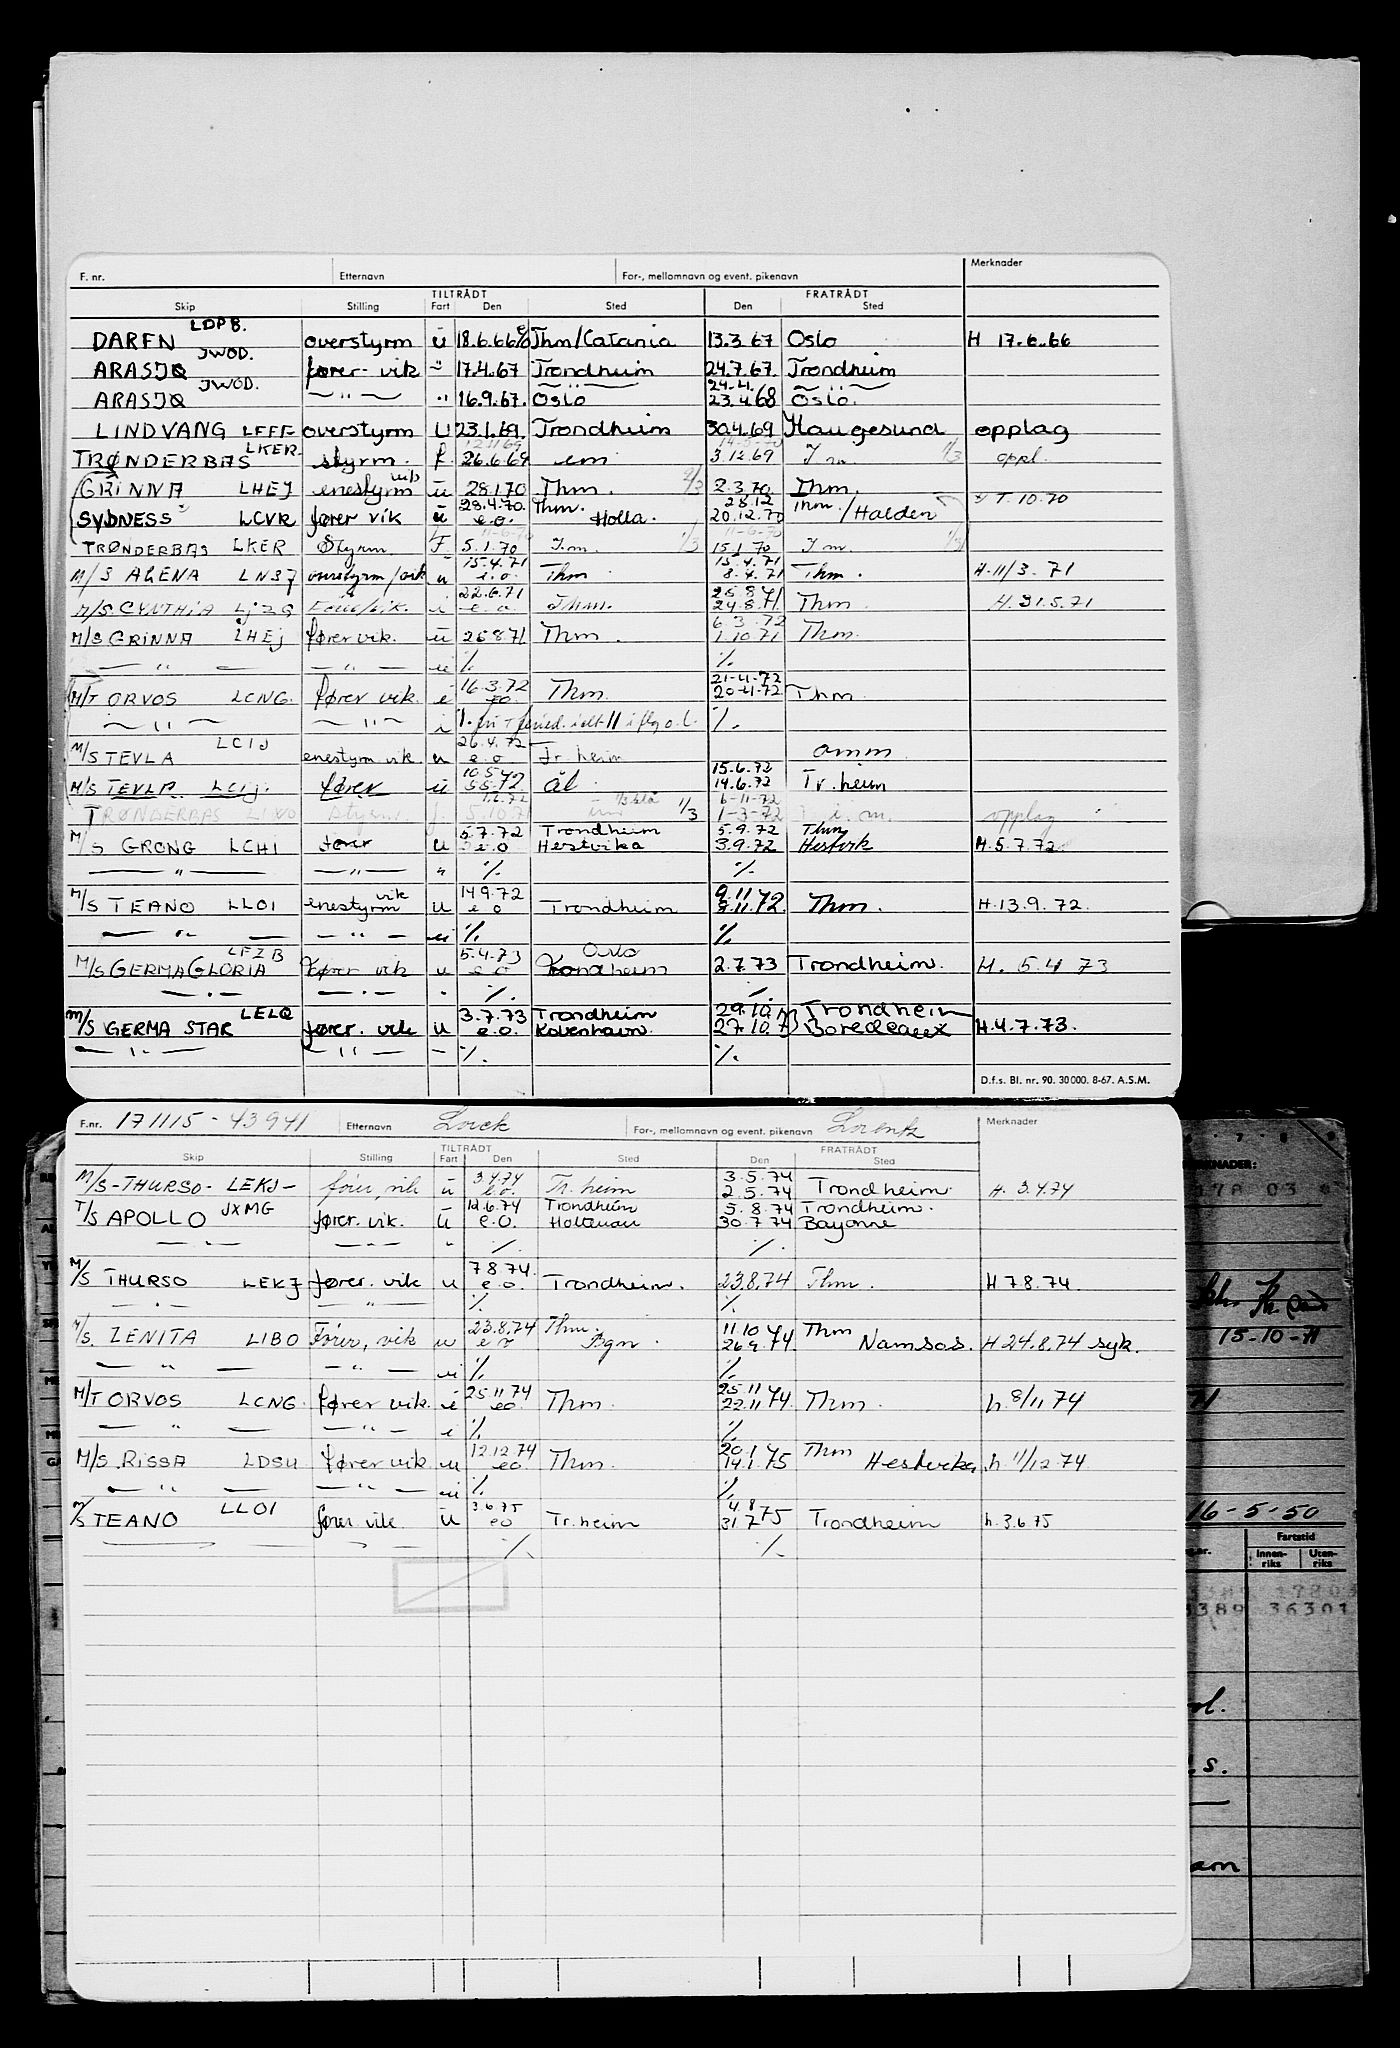 F. nr. Etternavn For-, mellomnavn og event. pikenavn Merknader
TILTRÅDT FRATRÅDT
Skip Stilling Fart Den Sted Den Sted
LDPB.
DARFN overstyrm u 18.6.66 Thm/Catania 13.3.67 Oslo H 17.6.66
JWOD.
ARASJØ fører-vik " 17.4.67 Trondheim 24.7.67. Trondheim
JWOD. 24.4.68
ARASJØ — " — " 16.9.67. Oslo 23.4.68 Oslo.
LINDVANG LFFF overstyrm U 23.1.69. Trondheim 30.4.69 Haugesund opplag
LKER
TRØNDERBAS styrm. f. 26.6.69 em 3.12.69 I m 1/3 oppl.
GRINNA LHEJ enestyrm vik u 28.1.70 Thm. 2/3 2.3.70 Thm.
28.4.70. Thm. 28.12 Thm
SYDNESS LCVR fører vik u e.o. Holla. 20.12.70 /Halden T. 10.70
TRØNDERBAS LKER Styrm. F 5.1.70 I.m. 1/3 15.1.70 I m. 1/3
15.4.71 15.4.71
M/S ALENA LNSJ overstyrm/vik u e.o. Thm 8.4.71 Thm. H.11/3.71
22.6.71 25.8.71
M/S CYNTHIA LJZG e.o. Thm. 24.8.71 Thm H.31.5.71
6.3.72
M/S GRINNA LHEJ fører vik. u 26.8.71 Thm. 1.10.71 Thm.
— " — — " — u %. %.
16.3.72 21-4-72
M/T ORVOS LCNG. fører vik. i eo. Thm. 20-4-72 Thm
— " — — " — i %. %.
26.4.72
M/S TEVLA LCIJ enestyrm vik u e.o Tr.heim omm
15.6.72
M/S TEVLA LCIJ. fører u 5.5.72 Ål 14.6.72 Tr.heim
6-11-72
TRØNDERBAS styrm f. 1/3 1-3-72 i. m. opplag
5.7.72 Trondheim 5.9.72 Thm
M/S GRONG LCHI fører u e.o Hestvika 3.9.72 Hestvik H.5.7.72
— " — — " — " %. %.
14.9.72 9.11.72
M/S TEANO LLOI enestyrm vik u e o Trondheim 7.11.72. Thm. H.13.9.72.
— " — — " — u %. %.
LFZB 5.4.73 Oslo
M/S GERMA GLORIA Fører vik u e o Trondheim 2.7.73 Trondheim. H. 5.4 73
— " — — " — " %. %.
LELQ 3.7.73 Trondheim 29.10. Trondheim
M/S GERMA STAR fører. vik u e.o. København. 27.10.73 Boredeaux H.4.7.73.
— " — — " — – %. %.
D.f.s. Bl. nr. 90. 30 000. 8-67. A.S.M.
F.nr. 171115 - 43941 Etternavn Lorck For-, mellomnavn og event. pikenavn Lorentz Merknader
TILTRÅDT FRATRÅDT
Skip Stilling Fart Den Sted Den Sted
3.4.74 3.5.74
M/S-THURSO- LEKJ- fører, vik u e.o. Tr.heim 2.5.74 Trondheim. H. 3.4.74
12.6.74 Trondheim 5.8.74 Trondheim.
T/S APOLLO JXMG fører. vik. u e.o. Holtenau 30.7.74 Bayonne
— " — — " — " %. %.
7.8.74.
M/S THURSO LEKJ fører. vik u e.o Trondheim. 23.8.74 Thm. H 7.8.74.
— " — — " — %. %.
23.8.74 Thm. 11.10.74 Thm
M/S. ZENITA LIBO Fører, vik u e o Bgn. 26.9.74 Namsos. H 24.8.74 syk.
— " — — " — u %. %.
25.11.74 25.11.74
M/T ORVOS LCNG. fører vik. i eo Thm. 22.11.74. Thm. h. 8/11 74
— " — — " — i %. %.
12.12.74 20.1.75 Thm
M/S. RISSA LDSU fører vik. u eo Thm. 14.1.75 Hestvika h 11/12.74
— " — — " — u %. %.
3.6.75 4.8
M/S TEANO LLOI fører vik. u eo Tr.heim 31.7.75 Trondheim h. 3.6.75
%. %.
15-10-71
16-5-50
Fartstid
Innen-riks Uten-riks
389 36301